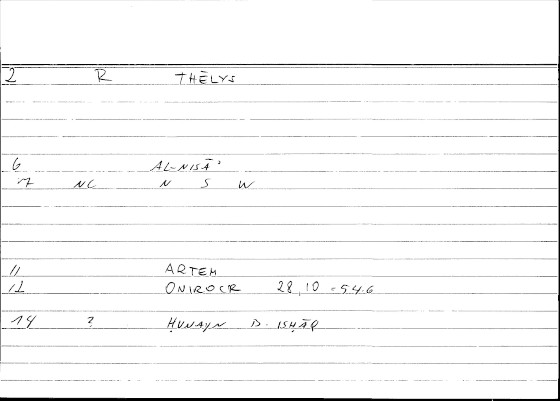 2 R THĒLYS
6 AL-NISĀʾ
7 NC N S W
11 ARTEM
12 ONIROCR 28,10 = 54,6
14 ? ḤUNAYN B. ISḤĀQ